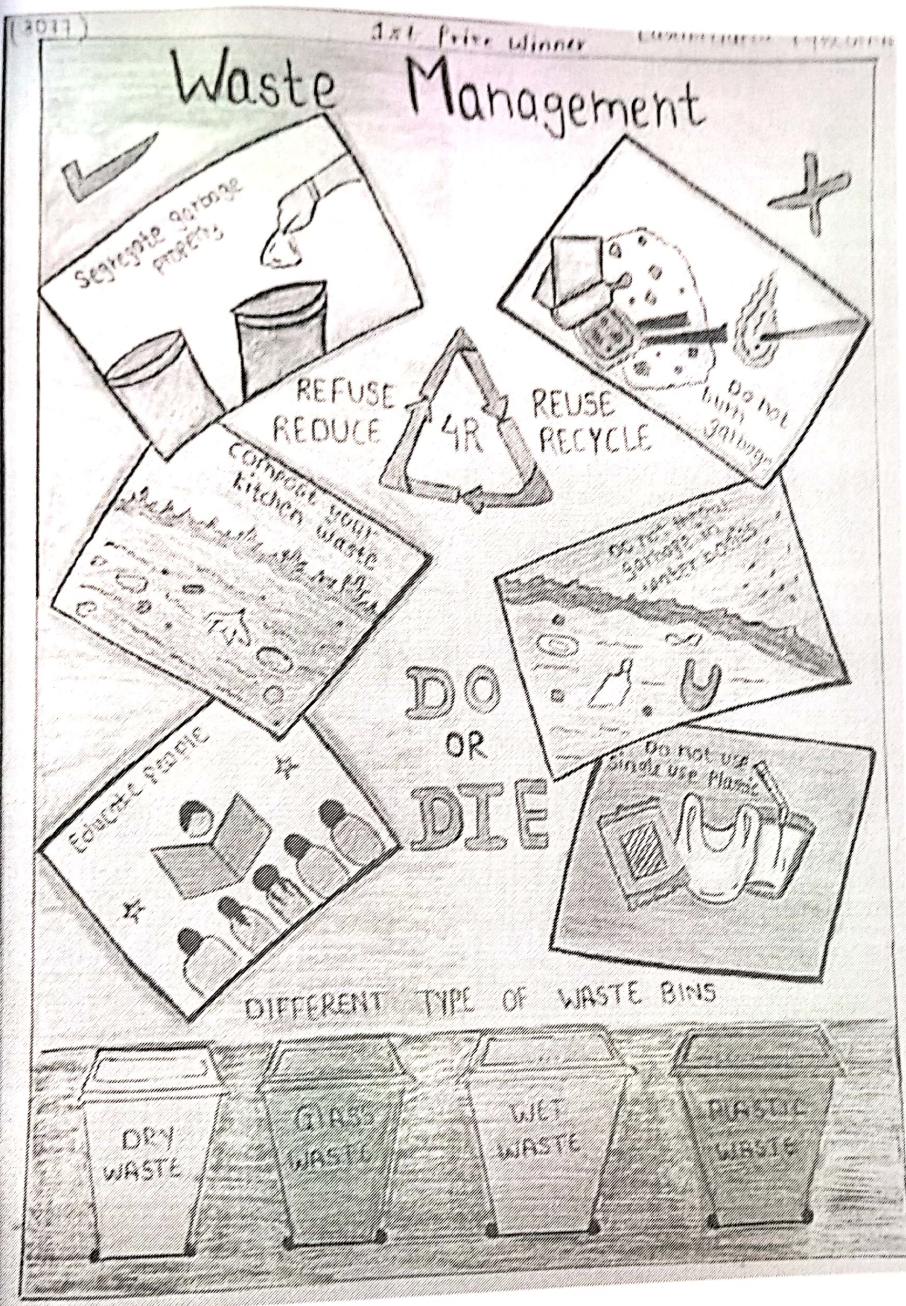 1st Prize Winner
Waste Management
Segregate garbage
properly
Do not
burn
garbage
REFUSE
REDUCE
4R
REUSE
RECYCLE
Compost your
kitchen waste
Do not throw
garbage in
water bodies
DO
OR
DIE
Educate People
Do not use
Single use Plastic
DIFFERENT TYPE OF WASTE BINS
DRY
WASTE
GLASS
WASTE
WET
WASTE
PLASTIC
WASTE